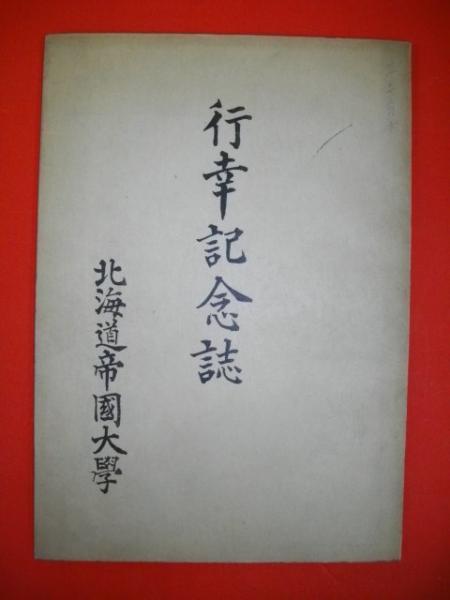 行幸記念誌
北海道帝國大學